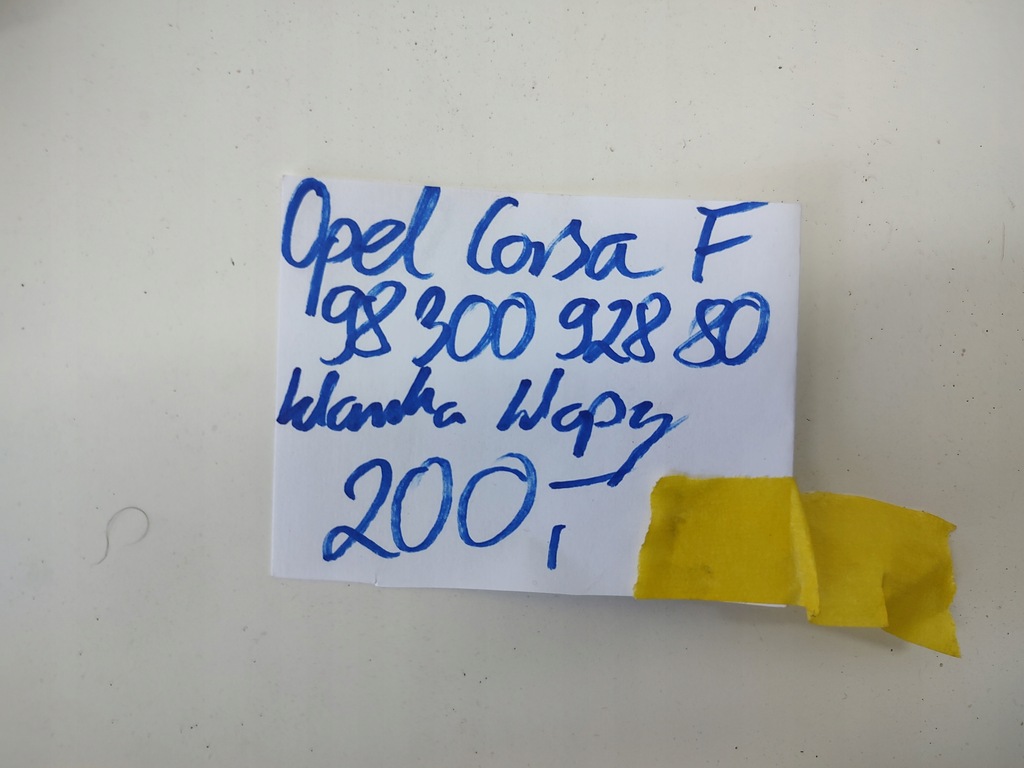 Opel Corsa F
98 300 928 80
klamka klapy
200,-